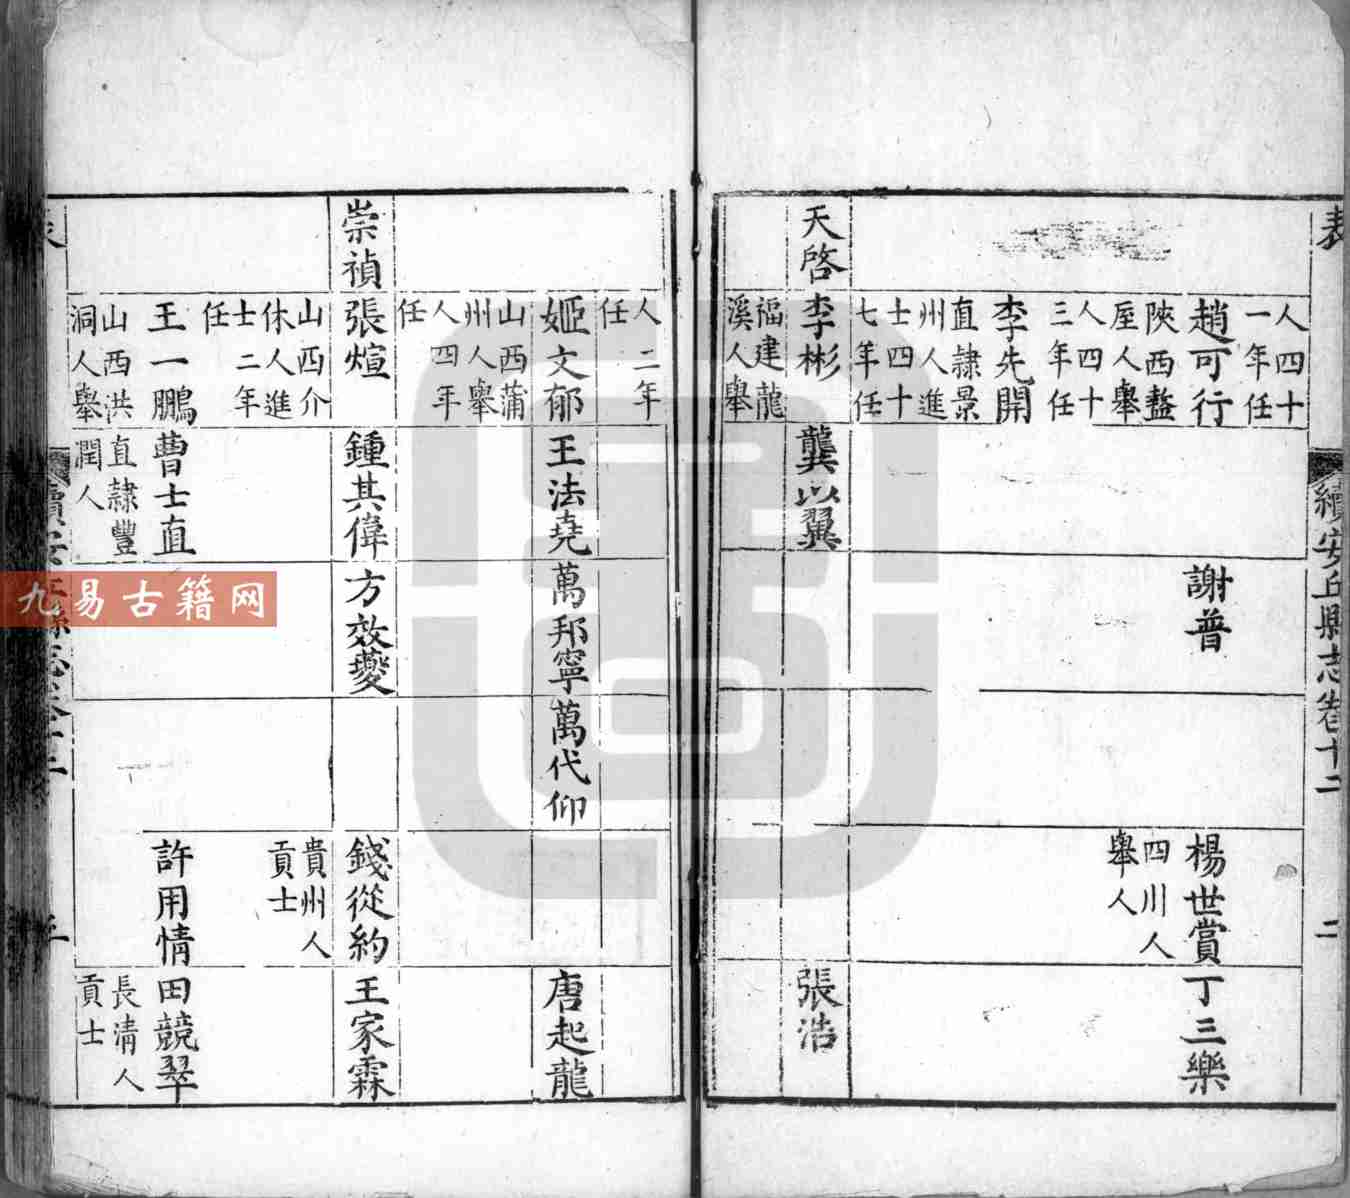 表
續安丘縣志卷十二
二
人四十
一年任
趙可行
陝西盩
厔人舉
人四十
三年任
李先開
直隸景
州人進
士四十
七年任
謝普
楊世賞
四川人
舉人
丁三樂
天啓
李彬
福建龍
溪人舉
龔以翼
張浩
人二年
任
姬文郁
山西蒲
州人舉
人四年
任
王法堯
萬邦寧
萬代仰
唐起龍
崇禎
張煊
山西介
休人進
士二年
任
鍾其偉
方效夔
錢從約
貴州人
貢士
王家霖
王一鵬
山西洪
洞人舉
曹士直
直隸豐
潤人
許用情
田競翠
長清人
貢士
九易古籍网